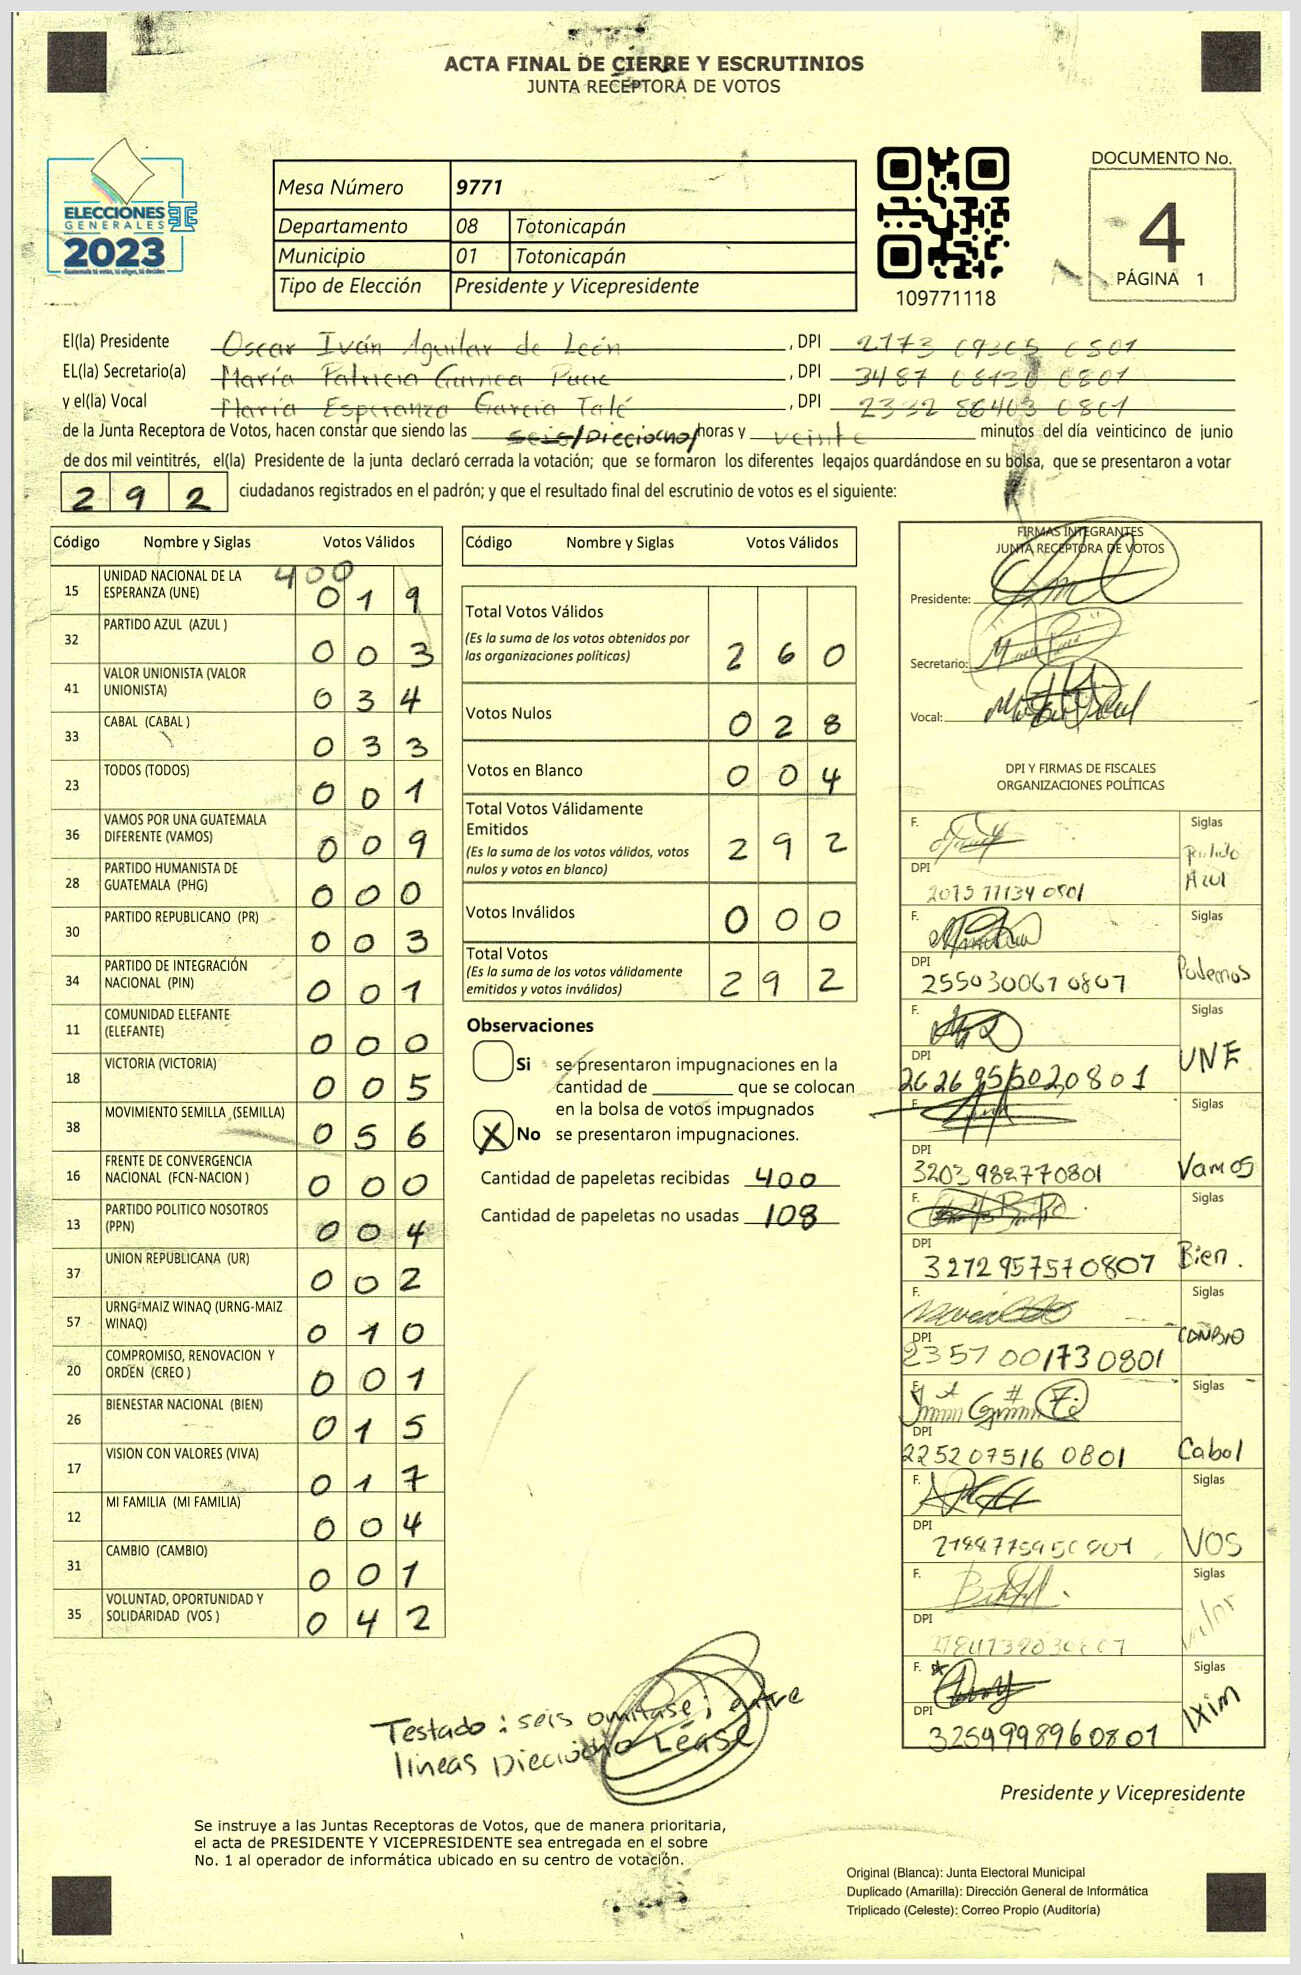 ACTA FINAL DE CIERRE Y ESCRUTINIOS
JUNTA RECEPTORA DE VOTOS
ELECCIONES
GENERALES
2023
Guatemala tú votas, tú eliges, tú decides
Mesa Número 9771
Departamento 08 Totonicapán
Municipio 01 Totonicapán
Tipo de Elección Presidente y Vicepresidente
109771118
DOCUMENTO No.
4
PÁGINA 1
El(la) Presidente Oscar Iván Aguilar de León, DPI 2173
EL(la) Secretario(a) María Patricia, DPI 3487 0801
y el(la) Vocal María Esperanza García Talé, DPI 2332 86403 0801
de la Junta Receptora de Votos, hacen constar que siendo las seis/Dieciocho/horas y veinte minutos del día veinticinco de junio
de dos mil veintitrés, el(la) Presidente de la junta declaró cerrada la votación; que se formaron los diferentes legajos guardándose en su bolsa, que se presentaron a votar
292 ciudadanos registrados en el padrón; y que el resultado final del escrutinio de votos es el siguiente:
Código Nombre y Siglas Votos Válidos
400
15 UNIDAD NACIONAL DE LA ESPERANZA (UNE) 019
32 PARTIDO AZUL (AZUL ) 003
41 VALOR UNIONISTA (VALOR UNIONISTA) 034
33 CABAL (CABAL ) 033
23 TODOS (TODOS) 001
36 VAMOS POR UNA GUATEMALA DIFERENTE (VAMOS) 009
28 PARTIDO HUMANISTA DE GUATEMALA (PHG) 000
30 PARTIDO REPUBLICANO (PR) 003
34 PARTIDO DE INTEGRACIÓN NACIONAL (PIN) 001
11 COMUNIDAD ELEFANTE (ELEFANTE) 000
18 VICTORIA (VICTORIA) 005
38 MOVIMIENTO SEMILLA (SEMILLA) 056
16 FRENTE DE CONVERGENCIA NACIONAL (FCN-NACION ) 000
13 PARTIDO POLITICO NOSOTROS (PPN) 004
37 UNION REPUBLICANA (UR) 002
57 URNG-MAIZ WINAQ (URNG-MAIZ WINAQ) 010
20 COMPROMISO, RENOVACION Y ORDEN (CREO ) 001
26 BIENESTAR NACIONAL (BIEN) 015
17 VISION CON VALORES (VIVA) 017
12 MI FAMILIA (MI FAMILIA) 004
31 CAMBIO (CAMBIO) 001
35 VOLUNTAD, OPORTUNIDAD Y SOLIDARIDAD (VOS ) 042
Código Nombre y Siglas Votos Válidos
Total Votos Válidos 260
(Es la suma de los votos obtenidos por las organizaciones políticas)
Votos Nulos 028
Votos en Blanco 004
Total Votos Válidamente Emitidos 292
(Es la suma de los votos válidos, votos nulos y votos en blanco)
Votos Inválidos 000
Total Votos 292
(Es la suma de los votos válidamente emitidos y votos inválidos)
Observaciones
Si se presentaron impugnaciones en la
cantidad de ________ que se colocan
en la bolsa de votos impugnados
X No se presentaron impugnaciones.
Cantidad de papeletas recibidas 400
Cantidad de papeletas no usadas 108
FIRMAS INTEGRANTES
JUNTA RECEPTORA DE VOTOS
Presidente:
Secretario:
Vocal:
DPI Y FIRMAS DE FISCALES
ORGANIZACIONES POLÍTICAS
F. Siglas
Partido Azul
DPI
F. Siglas
Podemos
DPI 2550300670807
F. Siglas
UNE
DPI
F. Siglas
Vamos
DPI 3203982770801
F. Siglas
Bien.
DPI 3272957570807
F. Siglas
CAMBIO
DPI 2357001730801
F. Siglas
Cabal
DPI 2252075160801
F. Siglas
VOS
DPI
F. Siglas
Valor
DPI
F. Siglas
IXIM
DPI 3259998960801
Testado: seis omitase; entre
líneas Dieciocho Léase
Presidente y Vicepresidente
Se instruye a las Juntas Receptoras de Votos, que de manera prioritaria,
el acta de PRESIDENTE Y VICEPRESIDENTE sea entregada en el sobre
No. 1 al operador de informática ubicado en su centro de votación.
Original (Blanca): Junta Electoral Municipal
Duplicado (Amarilla): Dirección General de Informática
Triplicado (Celeste): Correo Propio (Auditoría)